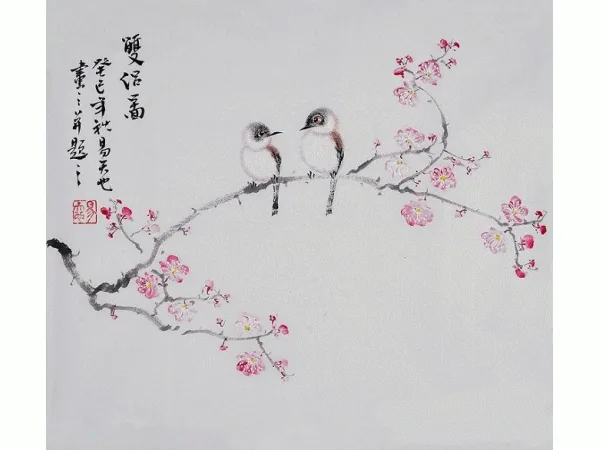 雙侣圖
癸巳年秋易天也
畫之并題之